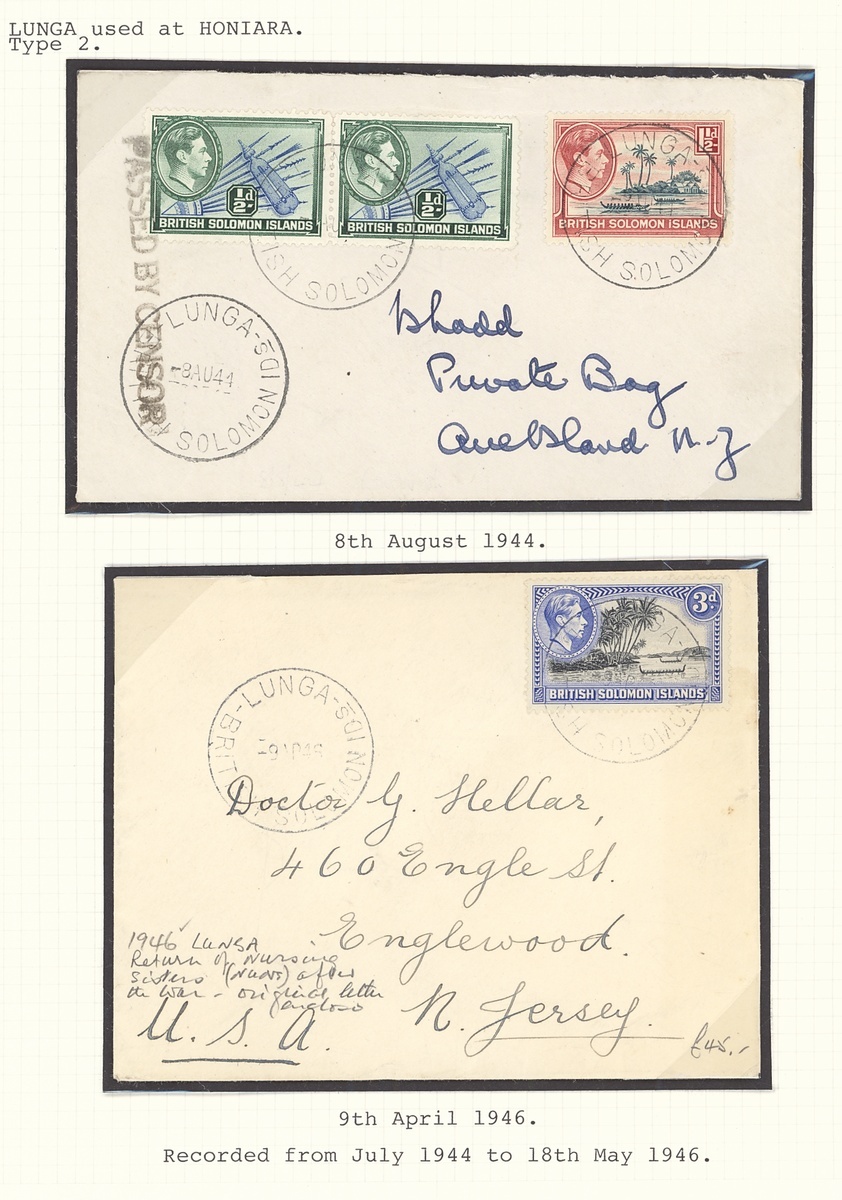 LUNGA used at HONIARA.
Type 2.
½d
BRITISH SOLOMON ISLANDS
½d
BRITISH SOLOMON ISLANDS
1½d
BRITISH SOLOMON ISLANDS
LUNGA-
ISH SOLOMON
ISH SOLOMON
PASSED BY CENSOR
LUNGA-
SOLOMON IDS
-8AU44
Private Bag
Auckland N.Z
8th August 1944.
3d
BRITISH SOLOMON ISLANDS
SH SOLOMON
-LUNGA-
BRIT SOLOMON IDS
-9AP46
Doctor G. Hellar,
460 Engle St.
Englewood.
N. Jersey.
U. S. A.
1946 LUNGA
Return of Nursing
Sisters (Nuns) after
the War - original letter
enclosed
£45.-
9th April 1946.
Recorded from July 1944 to 18th May 1946.